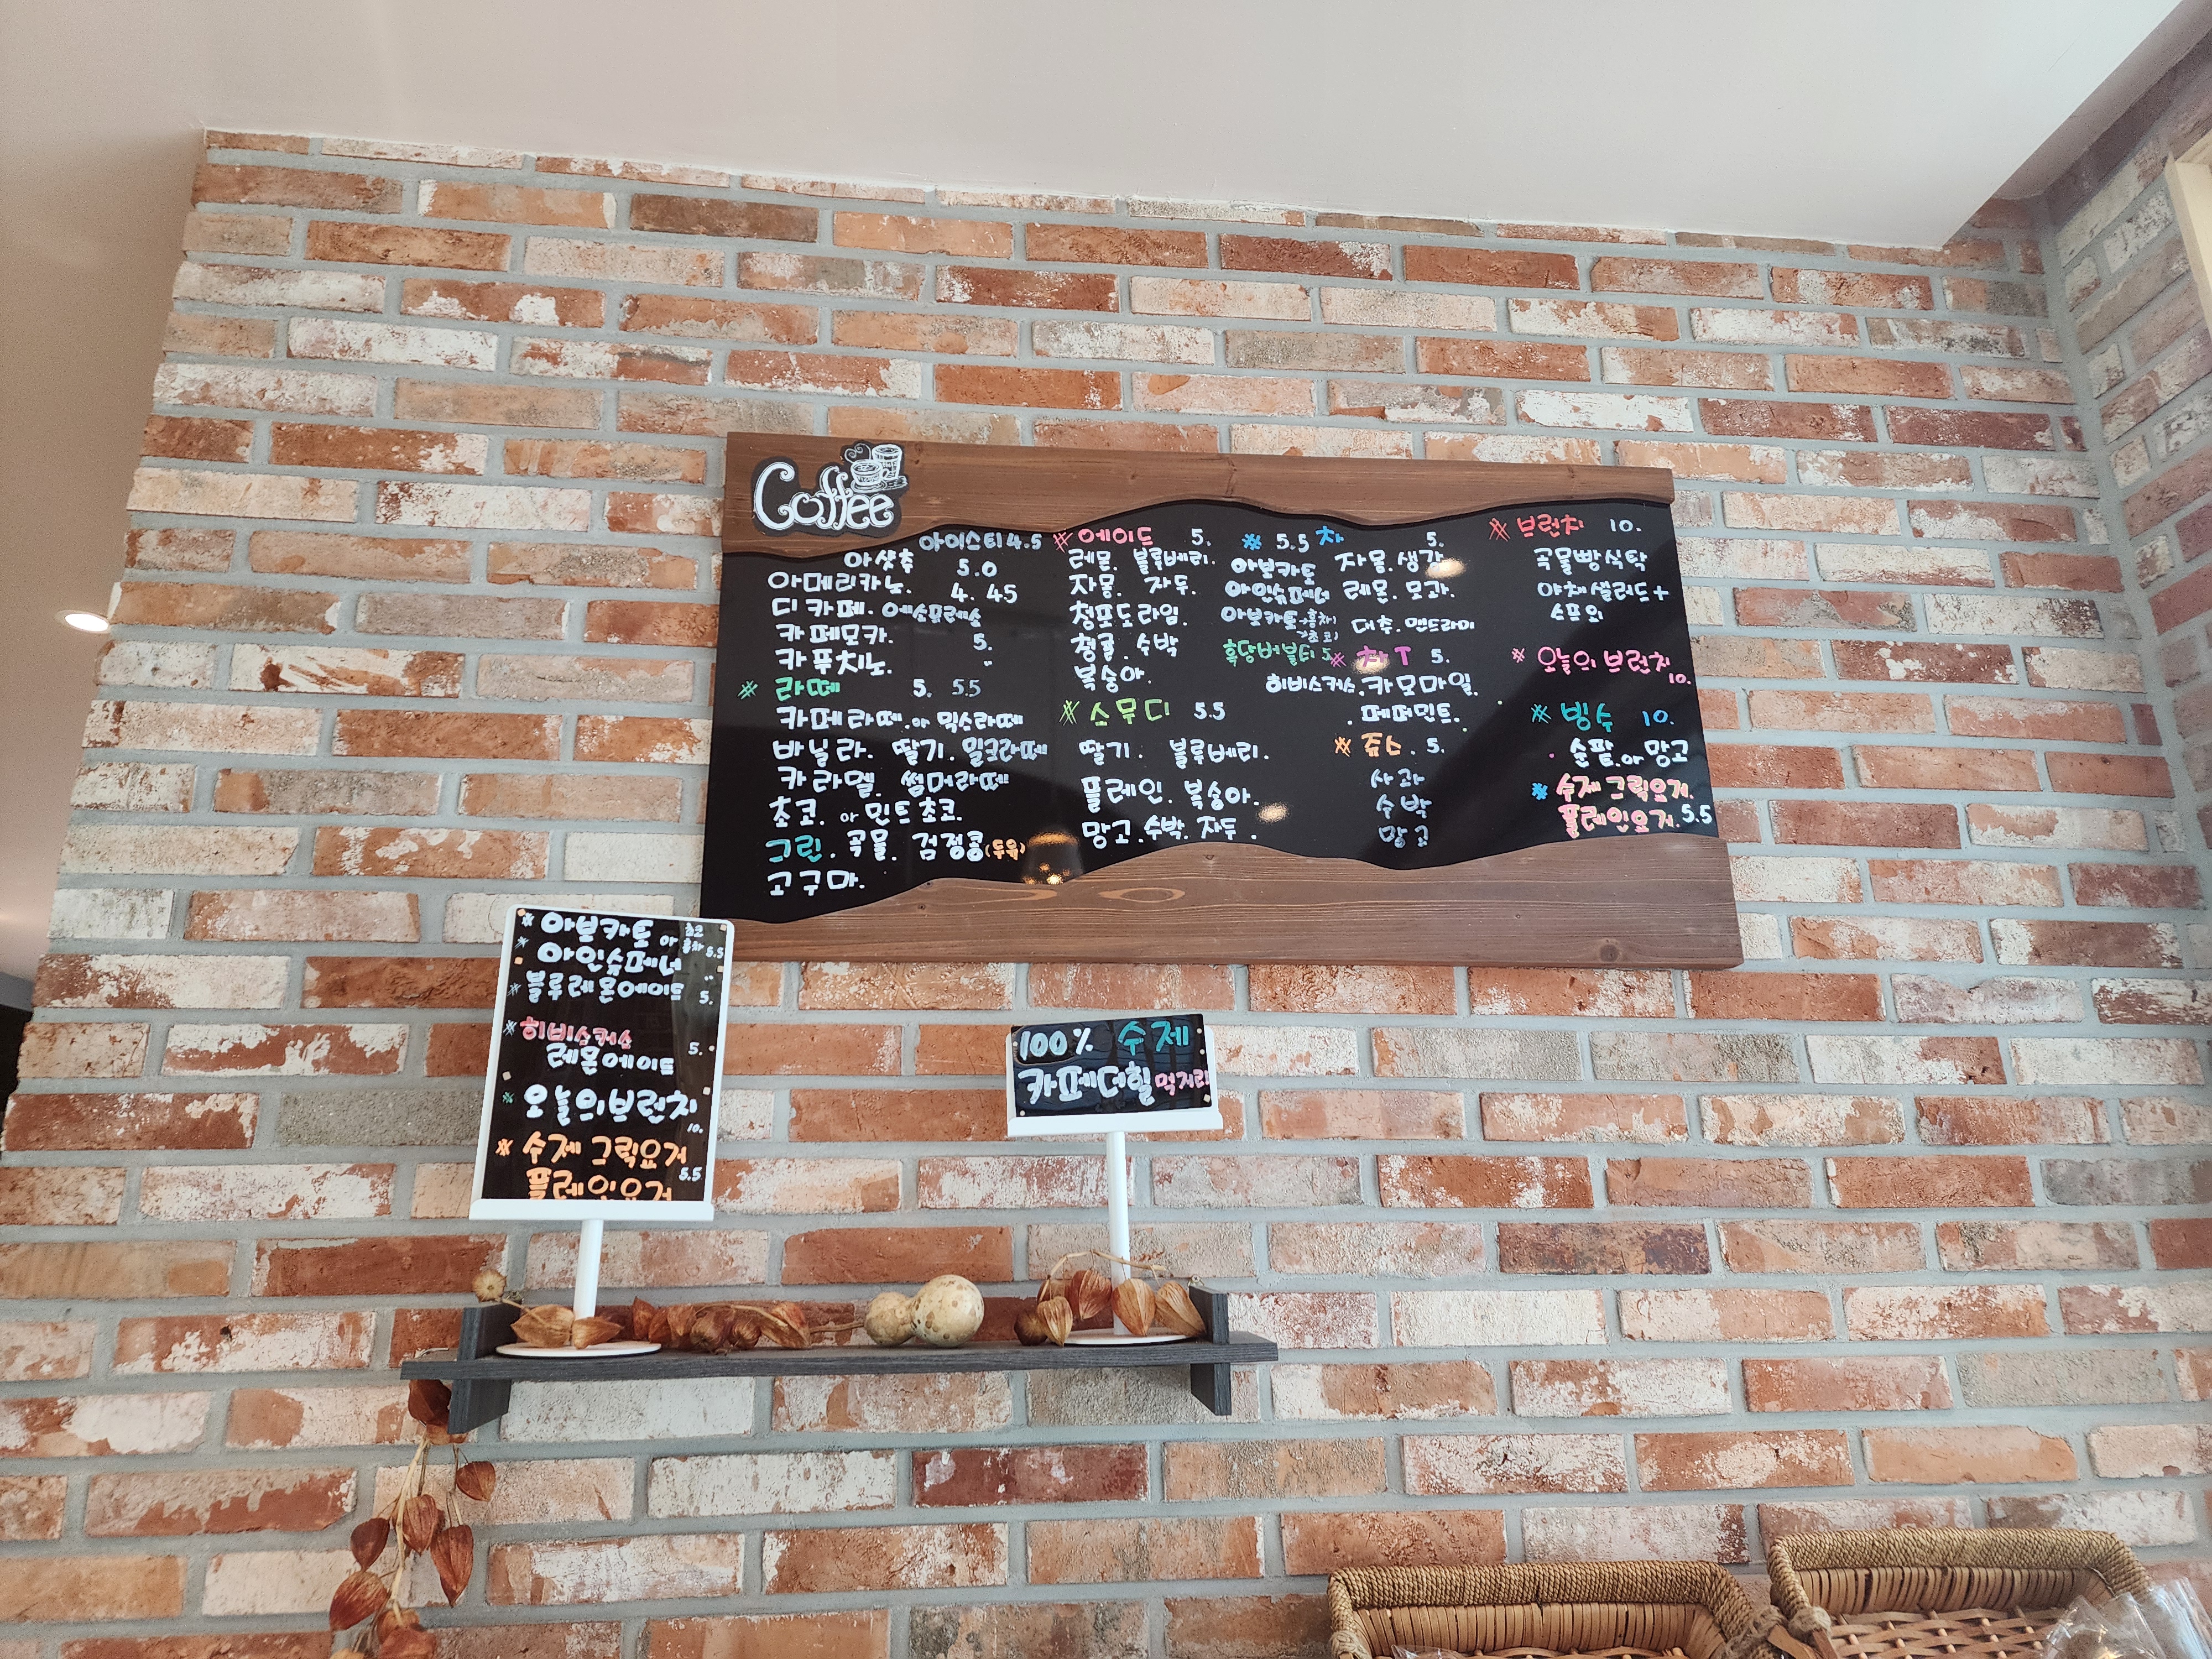 Coffee
아이스티 4.5
아샷추 5.0
아메리카노. 4. 45
디카페. 에스프레소
카페모카. 5.
카푸치노. "
※ 라떼 5. 5.5
카페라떼. or 믹스라떼
바닐라. 딸기. 밀크라떼
카라멜. 썸머라떼
초코. or 민트초코.
그린. 곡물. 검정콩(두유)
고구마.
※ 에이드 5.
레몬. 블루베리.
자몽. 자두.
청포도라임.
청귤. 수박
복숭아.
※ 스무디 5.5
딸기. 블루베리.
플레인. 복숭아.
망고. 수박. 자두.
※ 5.5
아보카토
아인슈페너
아보카토+홍차)
+초코)
흑당버블티 5.
차 5.
자몽. 생강
레몬. 모과.
대추. 맨드라미
※ 차T 5.
히비스커스. 카모마일.
. 페퍼민트.
※ 쥬스. 5.
사과
수박
망고
※ 브런치 10.
곡물빵식탁
야채샐러드+
스프외
※ 오늘의 브런치
10.
※ 빙수 10.
. 순팥. or 망고
※ 수제 그릭요거.
플레인요거. 5.5
※ 아보카토 or 초코 홍차 5.5
※ 아인슈페너 "
※ 블루레몬에이드 5.
※ 히비스커스
레몬에이드 5.
※ 오늘의브런치
10.
※ 수제 그릭요거
플레인요거 5.5
100% 수제
카페더힐 먹거리